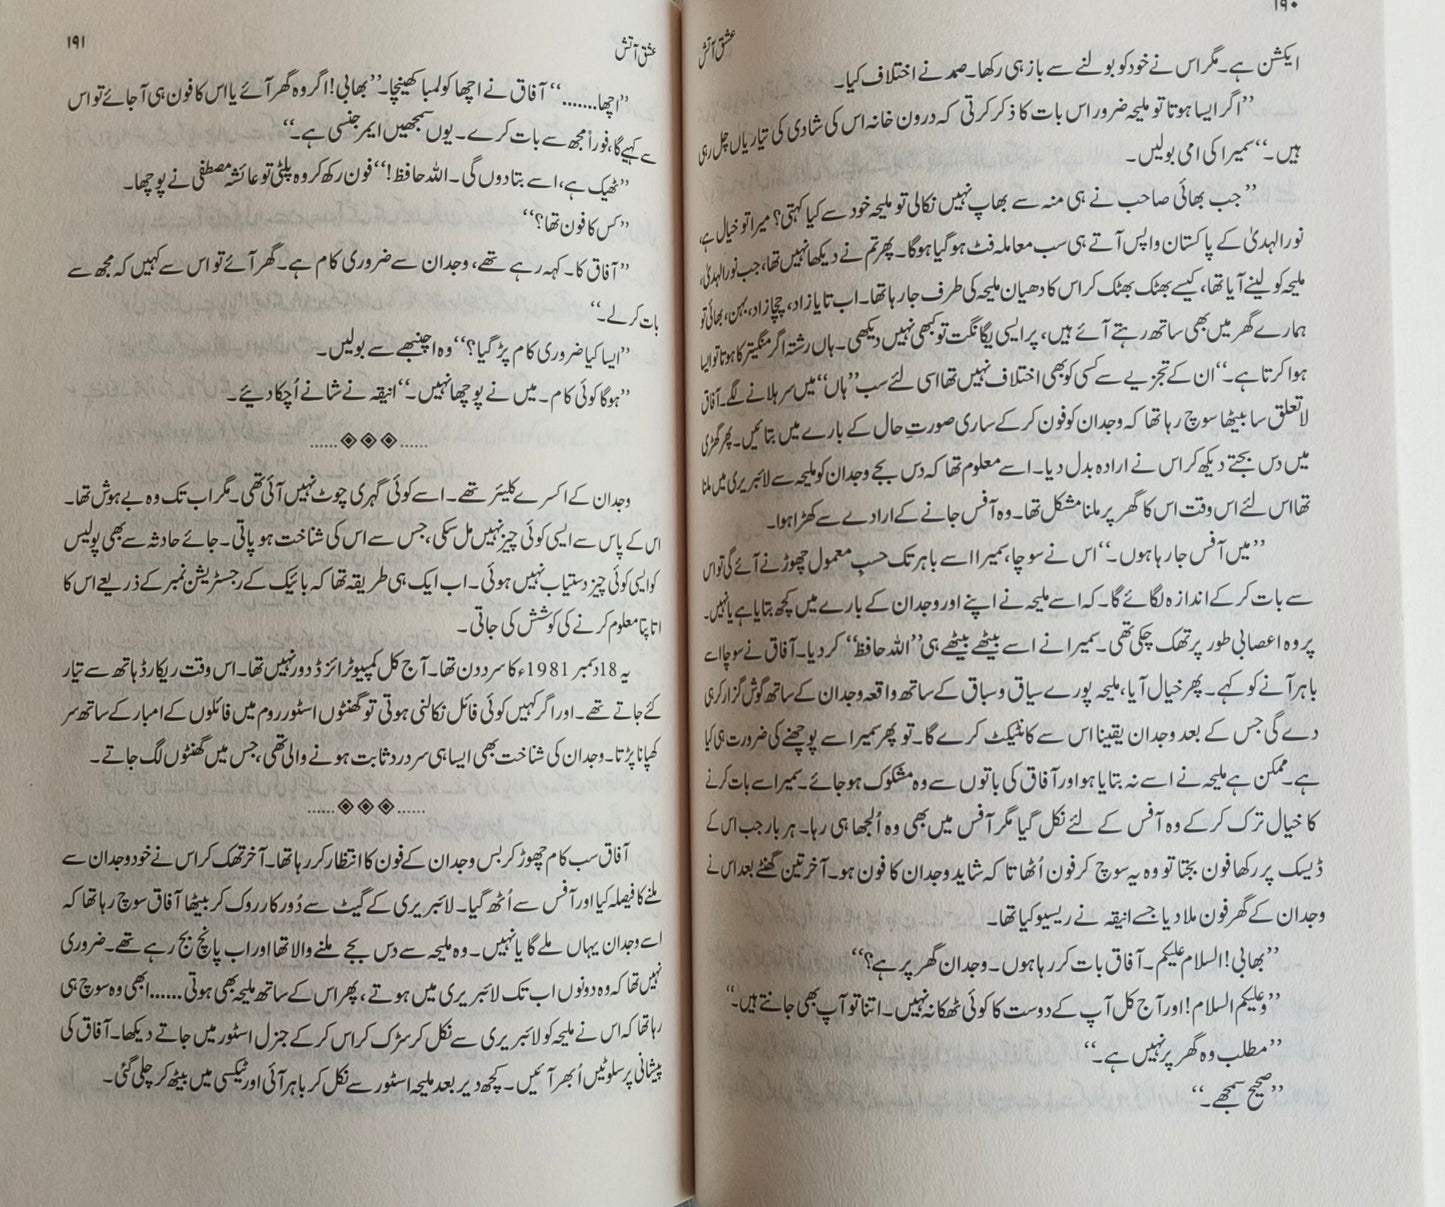 ۱۹۰
عشق آتش
ایکشن ہے۔ مگر اس نے خود کو بولنے سے باز ہی رکھا۔ صمد نے اختلاف کیا۔
’’اگر ایسا ہوتا تو ملیحہ ضرور اس بات کا ذکر کرتی کہ درون خانہ اس کی شادی کی تیاریاں چل رہی
ہیں۔‘‘ سمیرا کی امی بولیں۔
’’جب بھائی صاحب نے ہی منہ سے بھاپ نہیں نکالی تو ملیحہ خود سے کیا کہتی؟ میرا تو خیال ہے،
نورالہدیٰ کے پاکستان واپس آتے ہی سب معاملہ فٹ ہو گیا ہوگا۔ پھر تم نے دیکھا نہیں تھا، جب نورالہدیٰ،
ملیحہ کو لینے آیا تھا، کیسے بھٹک بھٹک کر اس کا دھیان ملیحہ کی طرف جا رہا تھا۔ اب تایا زاد، چچا زاد، بہن، بھائی تو
ہمارے گھر میں بھی ساتھ رہتے آئے ہیں، پر ایسی یگانگت تو کبھی نہیں دیکھی۔ ہاں رشتہ اگر منگیتر کا ہوتا تو ایسا
ہوا کرتا ہے۔‘‘ ان کے تجزیے سے کسی کو بھی اختلاف نہیں تھا اسی لئے سب ’’ہاں‘‘ میں سر ہلانے لگے۔ آفاق
لاتعلق سا بیٹھا سوچ رہا تھا کہ وجدان کو فون کر کے ساری صورتِ حال کے بارے میں بتائیں۔ پھر گھڑی
میں دس بجتے دیکھ کر اس نے ارادہ بدل دیا۔ اسے معلوم تھا کہ دس بجے وجدان کو ملیحہ سے لائبریری میں ملنا
تھا اس لئے اس وقت اس کا گھر پر ملنا مشکل تھا۔ وہ آفس جانے کے ارادے سے کھڑا ہوا۔
’’میں آفس جا رہا ہوں۔‘‘ اس نے سوچا، سمیرا اسے باہر تک حسبِ معمول چھوڑنے آئے گی تو اس
سے بات کر کے اندازہ لگائے گا۔ کہ اسے ملیحہ نے اپنے اور وجدان کے بارے میں کچھ بتایا ہے یا نہیں۔
پر وہ اعصابی طور پر تھک چکی تھی۔ سمیرا نے اسے بیٹھے بیٹھے ہی ’’اللہ حافظ‘‘ کر دیا۔ آفاق نے سوچا اسے
باہر آنے کو کہے۔ پھر خیال آیا، ملیحہ پورے سیاق و سباق کے ساتھ واقعہ وجدان کے ساتھ گوش گزار کر ہی
دے گی جس کے بعد وجدان یقینا اس سے کانٹیکٹ کرے گا۔ تو پھر سمیرا سے پوچھنے کی ضرورت ہی کیا
ہے۔ ممکن ہے ملیحہ نے اسے نہ بتایا ہو اور آفاق کی باتوں سے وہ مشکوک ہو جائے۔ سمیرا سے بات کرنے
کا خیال ترک کر کے وہ آفس کے لئے نکل گیا مگر آفس میں بھی وہ اُلجھا ہی رہا۔ ہر بار جب اس کے
ڈیسک پر رکھا فون بجتا تو وہ یہ سوچ کر فون اُٹھاتا کہ شاید وجدان کا فون ہو۔ آخر تین گھنٹے بعد اس نے
وجدان کے گھر فون ملا دیا جسے انیقہ نے ریسیو کیا تھا۔
’’بھابی! السلام علیکم۔ آفاق بات کر رہا ہوں۔ وجدان گھر پر ہے؟‘‘
’’وعلیکم السلام! اور آج کل آپ کے دوست کا کوئی ٹھکانہ نہیں۔ اتنا تو آپ بھی جانتے ہیں۔‘‘
’’مطلب وہ گھر پر نہیں ہے۔‘‘
’’صحیح سمجھے۔‘‘
عشق آتش
۱۹۱
’’اچھا.......‘‘ آفاق نے اچھا کو لمبا کھینچا۔ ’’بھابی! اگر وہ گھر آئے یا اس کا فون ہی آ جائے تو اس
سے کہیے گا، فوراً مجھ سے بات کرے۔ یوں سمجھیں ایمرجنسی ہے۔‘‘
’’ٹھیک ہے، اسے بتا دوں گی۔ اللہ حافظ!‘‘ فون رکھ کر وہ پلٹی تو عائشہ مصطفی نے پوچھا۔
’’کس کا فون تھا؟‘‘
’’آفاق کا۔ کہہ رہے تھے، وجدان سے ضروری کام ہے۔ گھر آئے تو اس سے کہیں کہ مجھ سے
بات کر لے۔‘‘
’’ایسا کیا ضروری کام پڑ گیا؟‘‘ وہ اچنبھے سے بولیں۔
’’ہوگا کوئی کام۔ میں نے پوچھا نہیں۔‘‘ انیقہ نے شانے اُچکا دیئے۔
......◈◈◈......
وجدان کے اکسرے کلیئر تھے۔ اسے کوئی گہری چوٹ نہیں آئی تھی۔ مگر اب تک وہ بے ہوش تھا۔
اس کے پاس سے ایسی کوئی چیز نہیں مل سکی، جس سے اس کی شناخت ہو پاتی۔ جائے حادثہ سے بھی پولیس
کو ایسی کوئی چیز دستیاب نہیں ہوئی۔ اب ایک ہی طریقہ تھا کہ بائیک کے رجسٹریشن نمبر کے ذریعے اس کا
اتا پتا معلوم کرنے کی کوشش کی جاتی۔
یہ 18 دسمبر 1981ء کا سرد دن تھا۔ آج کل کمپیوٹرائزڈ دور نہیں تھا۔ اس وقت ریکارڈ ہاتھ سے تیار
کئے جاتے تھے۔ اور اگر کہیں کوئی فائل نکالنی ہوتی تو گھنٹوں اسٹور روم میں فائلوں کے امبار کے ساتھ سر
کھپانا پڑتا۔ وجدان کی شناخت بھی ایسا ہی سر درد ثابت ہونے والی تھی، جس میں گھنٹوں لگ جاتے۔
......◈◈◈......
آفاق سب کام چھوڑ کر بس وجدان کے فون کا انتظار کر رہا تھا۔ آخر تھک کر اس نے خود وجدان سے
ملنے کا فیصلہ کیا اور آفس سے اُٹھ گیا۔ لائبریری کے گیٹ سے دُور کار روک کر بیٹھا آفاق سوچ رہا تھا کہ
اسے وجدان یہاں ملے گا یا نہیں۔ وہ ملیحہ سے دس بجے ملنے والا تھا اور اب پانچ بج رہے تھے۔ ضروری
نہیں تھا کہ وہ دونوں اب تک لائبریری میں ہوتے، پھر اس کے ساتھ ملیحہ بھی ہوتی...... ابھی وہ سوچ ہی
رہا تھا کہ اس نے ملیحہ کو لائبریری سے نکل کر سڑک کراس کر کے جنرل اسٹور میں جاتے دیکھا۔ آفاق کی
پیشانی پر سلوٹیں اُبھر آئیں۔ کچھ دیر بعد ملیحہ اسٹور سے نکل کر باہر آئی اور ٹیکسی میں بیٹھ کر چلی گئی۔